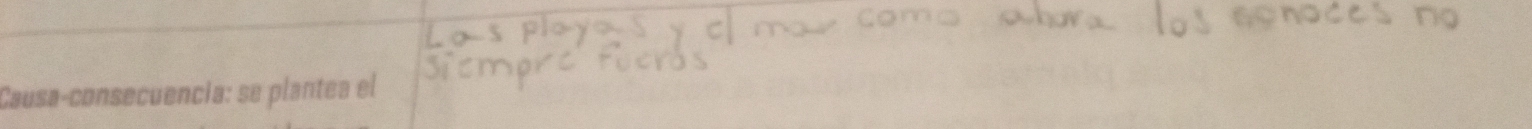 Las playas y el mar como ahora los conoces no
siempre fueros
Causa-consecuencia: se plantea el